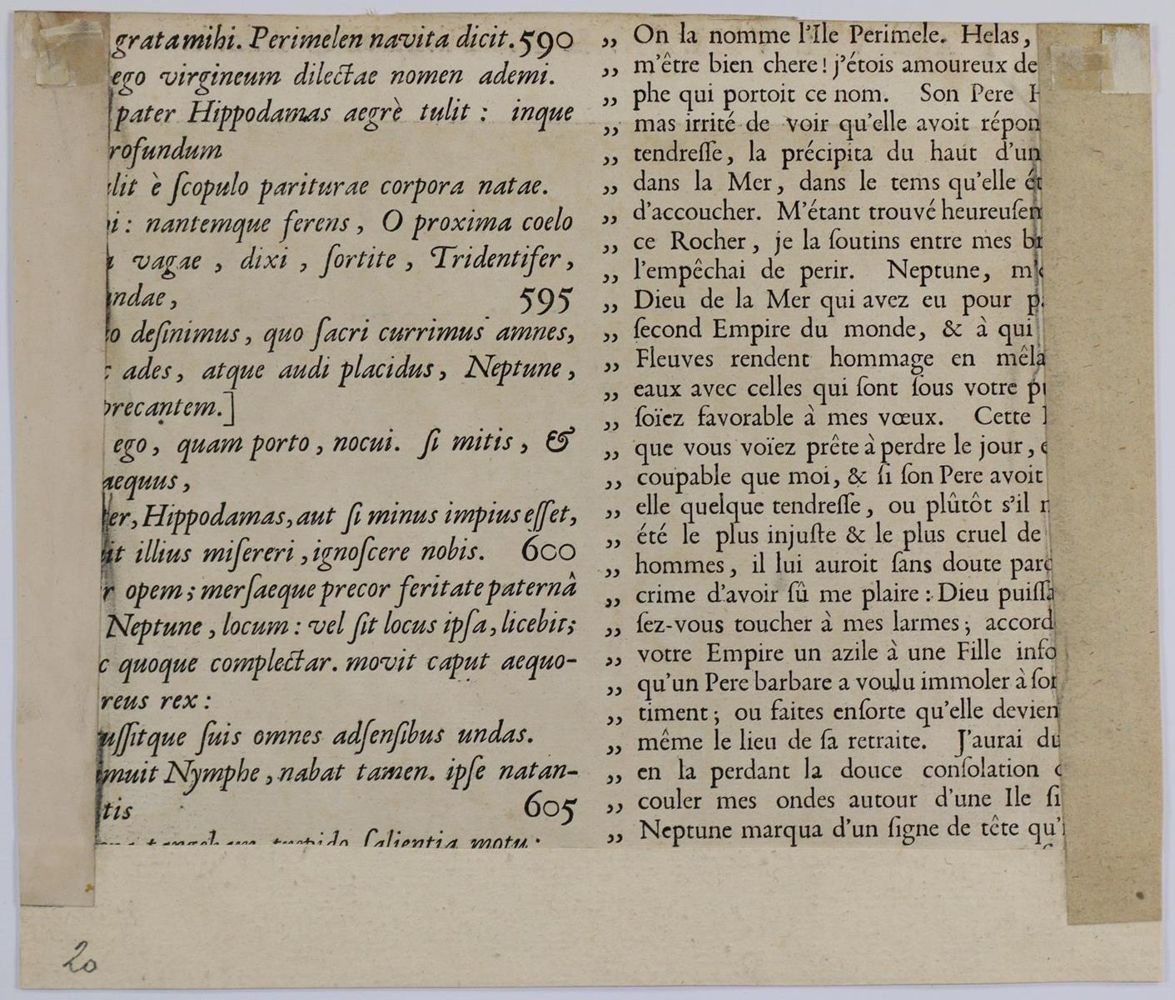 grata mihi. Perimelen navita dicit. 590
ego virgineum dilectae nomen ademi.
pater Hippodamas aegrè tulit : inque
rofundum
lit è ſcopulo pariturae corpora natae.
i : nantemque ferens, O proxima coelo
vagae , dixi , ſortite , Tridentifer,
ndae, 595
o deſinimus, quo ſacri currimus amnes,
ades, atque audi placidus, Neptune,
precantem.]
ego, quam porto, nocui. ſi mitis, &
aequus,
er, Hippodamas, aut ſi minus impius eſſet,
it illius miſereri, ignoſcere nobis. 600
r opem ; merſaeque precor feritate paternâ
Neptune, locum : vel ſit locus ipſa, licebit ;
c quoque complectar. movit caput aequo-
reus rex :
uſſitque ſuis omnes adſenſibus undas.
muit Nymphe, nabat tamen. ipſe natan-
tis 605
tangebam trepido ſalientia motu :
„ On la nomme l'Ile Perimele. Helas,
„ m'être bien chere ! j'étois amoureux de
„ phe qui portoit ce nom. Son Pere H
„ mas irrité de voir qu'elle avoit répon
„ tendreſſe, la précipita du haut d'un
„ dans la Mer, dans le tems qu'elle ét
„ d'accoucher. M'étant trouvé heureuſem
„ ce Rocher, je la ſoutins entre mes br
„ l'empêchai de perir. Neptune, m'é
„ Dieu de la Mer qui avez eu pour p
„ ſecond Empire du monde, & à qui
„ Fleuves rendent hommage en mêla
„ eaux avec celles qui ſont ſous votre pu
„ ſoïez favorable à mes vœux. Cette
„ que vous voïez prête à perdre le jour, e
„ coupable que moi, & ſi ſon Pere avoit
„ elle quelque tendreſſe, ou plûtôt s'il n
„ été le plus injuſte & le plus cruel de
„ hommes, il lui auroit ſans doute pard
„ crime d'avoir ſû me plaire : Dieu puiſſa
„ ſez-vous toucher à mes larmes ; accord
„ votre Empire un azile à une Fille info
„ qu'un Pere barbare a voulu immoler à ſon
„ timent ; ou faites enſorte qu'elle devien
„ même le lieu de ſa retraite. J'aurai du
„ en la perdant la douce conſolation
„ couler mes ondes autour d'une Ile ſi
„ Neptune marqua d'un ſigne de tête qu'i
20